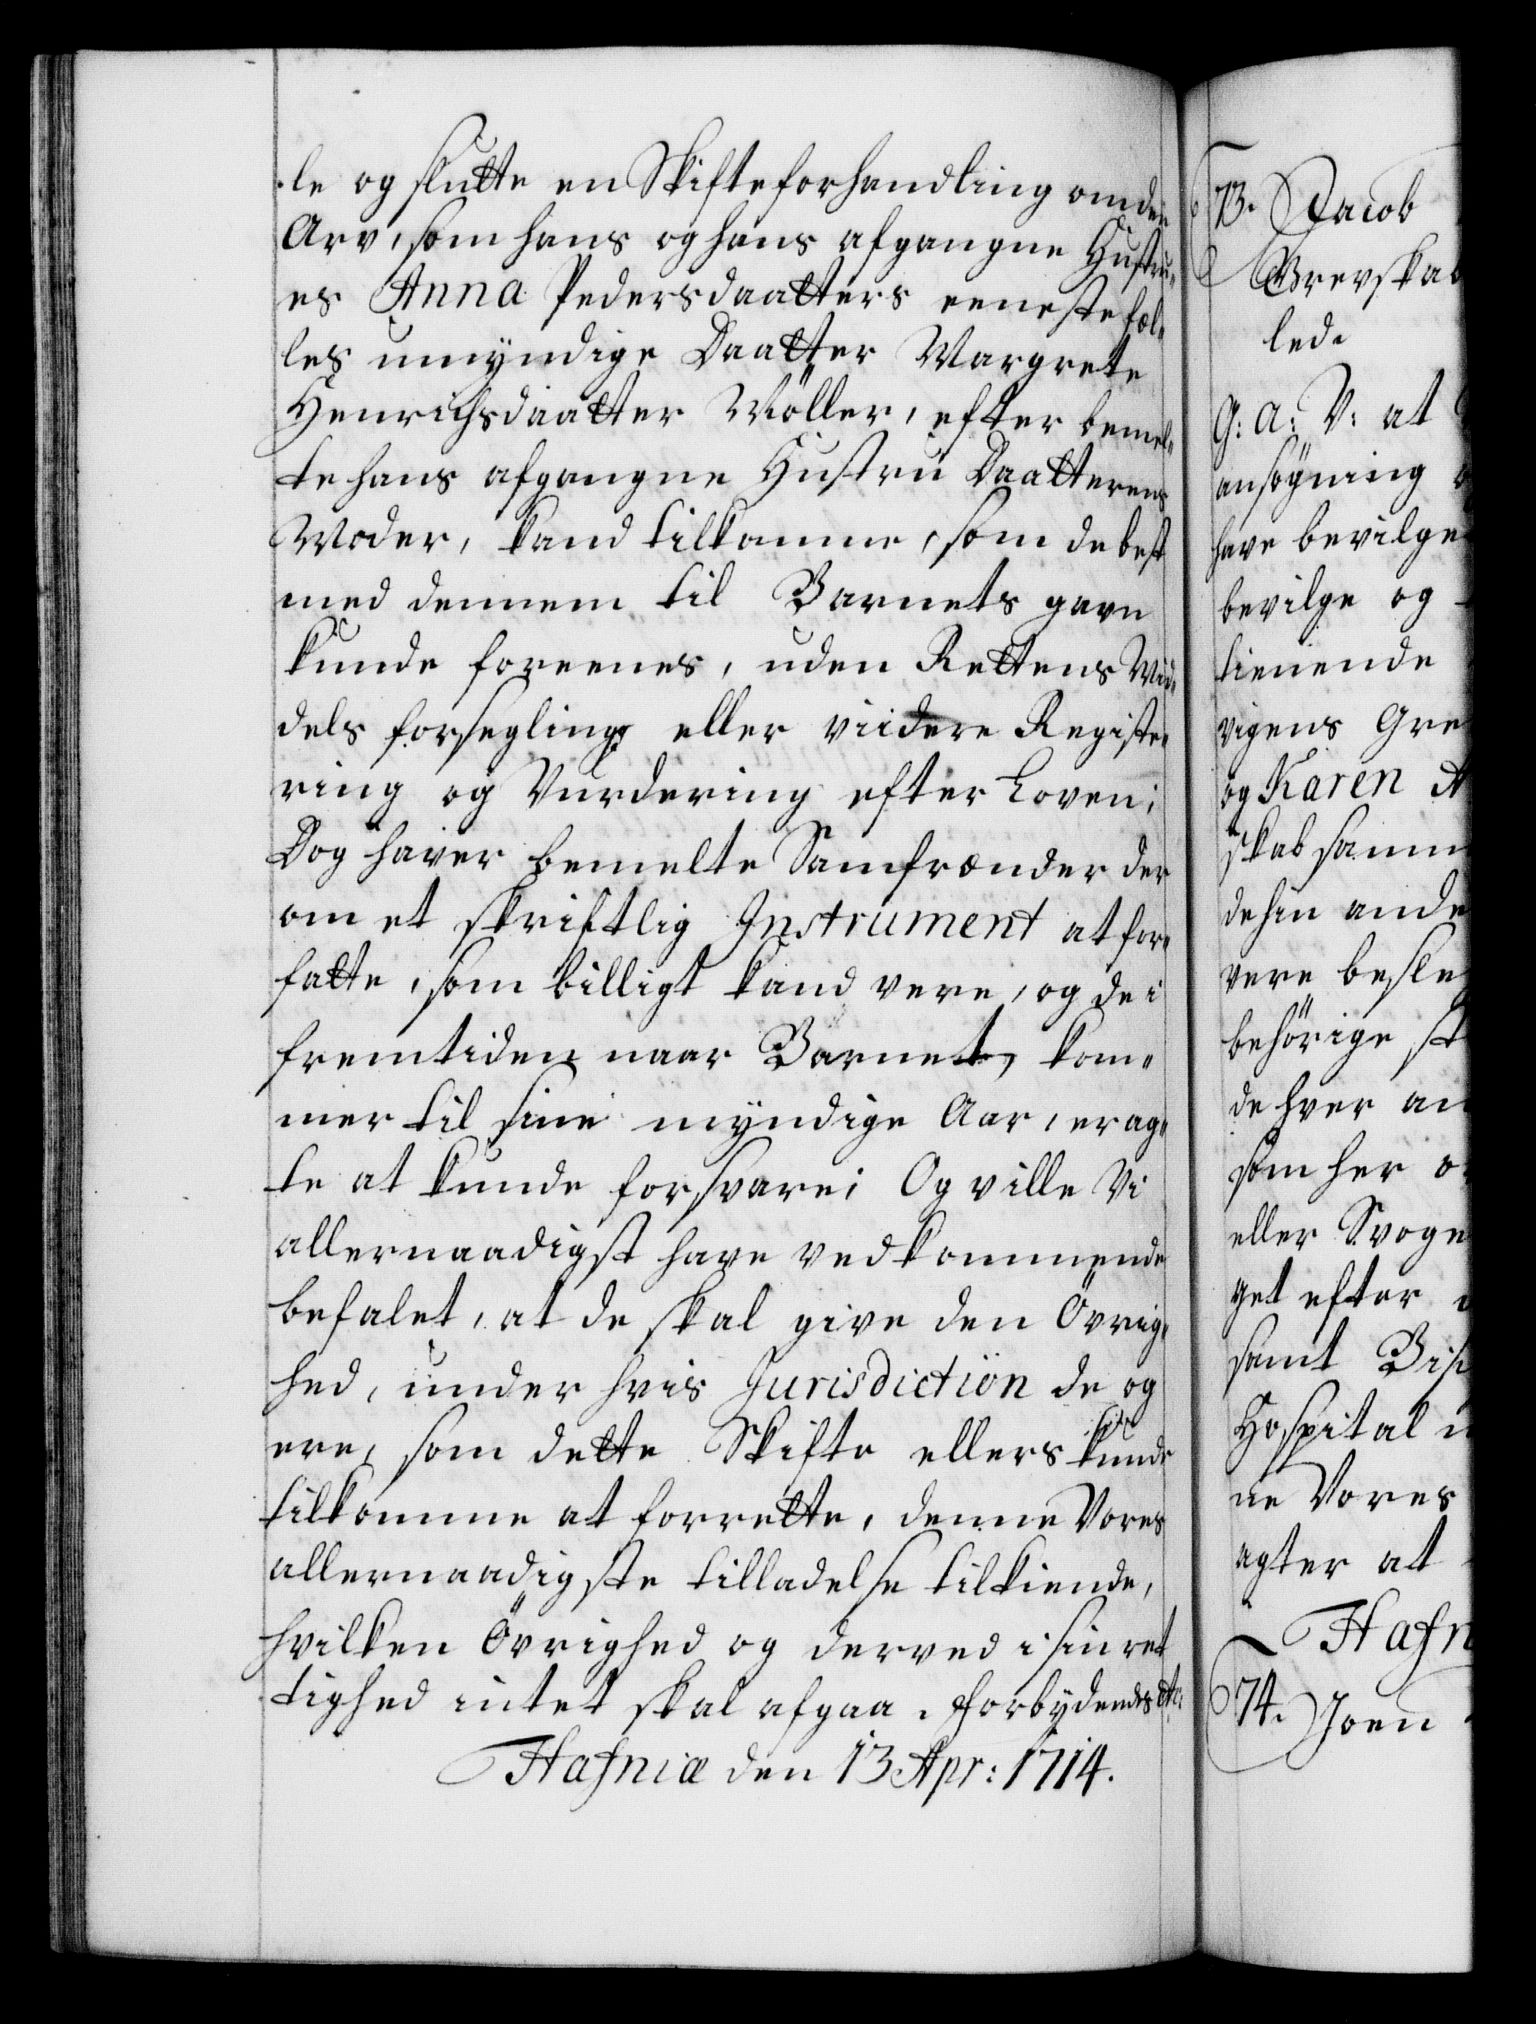 le og slutte en Skifteforhandling om den
Arv, som hans og hans afgangne Hustru„
es Anna Pedersdaatters eeneste fæl„
les umÿndige Daatter Margrete
Henrichsdaatter Möller, efter bemel„
te hans afgangne Hustru Daatterens
Moder, kand tilkomme, som de best
med dennem til Barnets gavn
kunde foreenes, uden Rettens Mid„
dels forsegling eller viidere Registe„
ring og Vurdering efter Loven;
Dog haver bemelte Samfrænder der
om et skriftlig Instrument at for„
fatte, som billigt kand være, og de i
fremtiden naar Barnet, kom„
mer til sine mÿndige Aar, erag„
te at kunde forsvare; Og ville Vi
allernaadigst have vedkommende
befalet, at de skal give den Övrig„
hed, under hvis Jurisdiction de og
ere, som dette Skifte ellers kunde
tilkomme at forrette, denne Vores
allernaadigste tilladelse tilkiende,
hvilken Övrighed og derved i sin ret
tighed intet skal afgaa. Forbÿdendes etc:
Hafniæ den 13 Apr: 1714.
73. Jacob
Grevskab
led.
G: A: V: at
ansögning
have bevilge
bevilge og
tienende
vigens Gre
og Karen A
skab samm
dehin ande
vere besle
behörige st
de hver an
som her o
eller Svoge
get efter
samt Bis
Hospital
ne Vores
agter at
Hafn
74. Joen